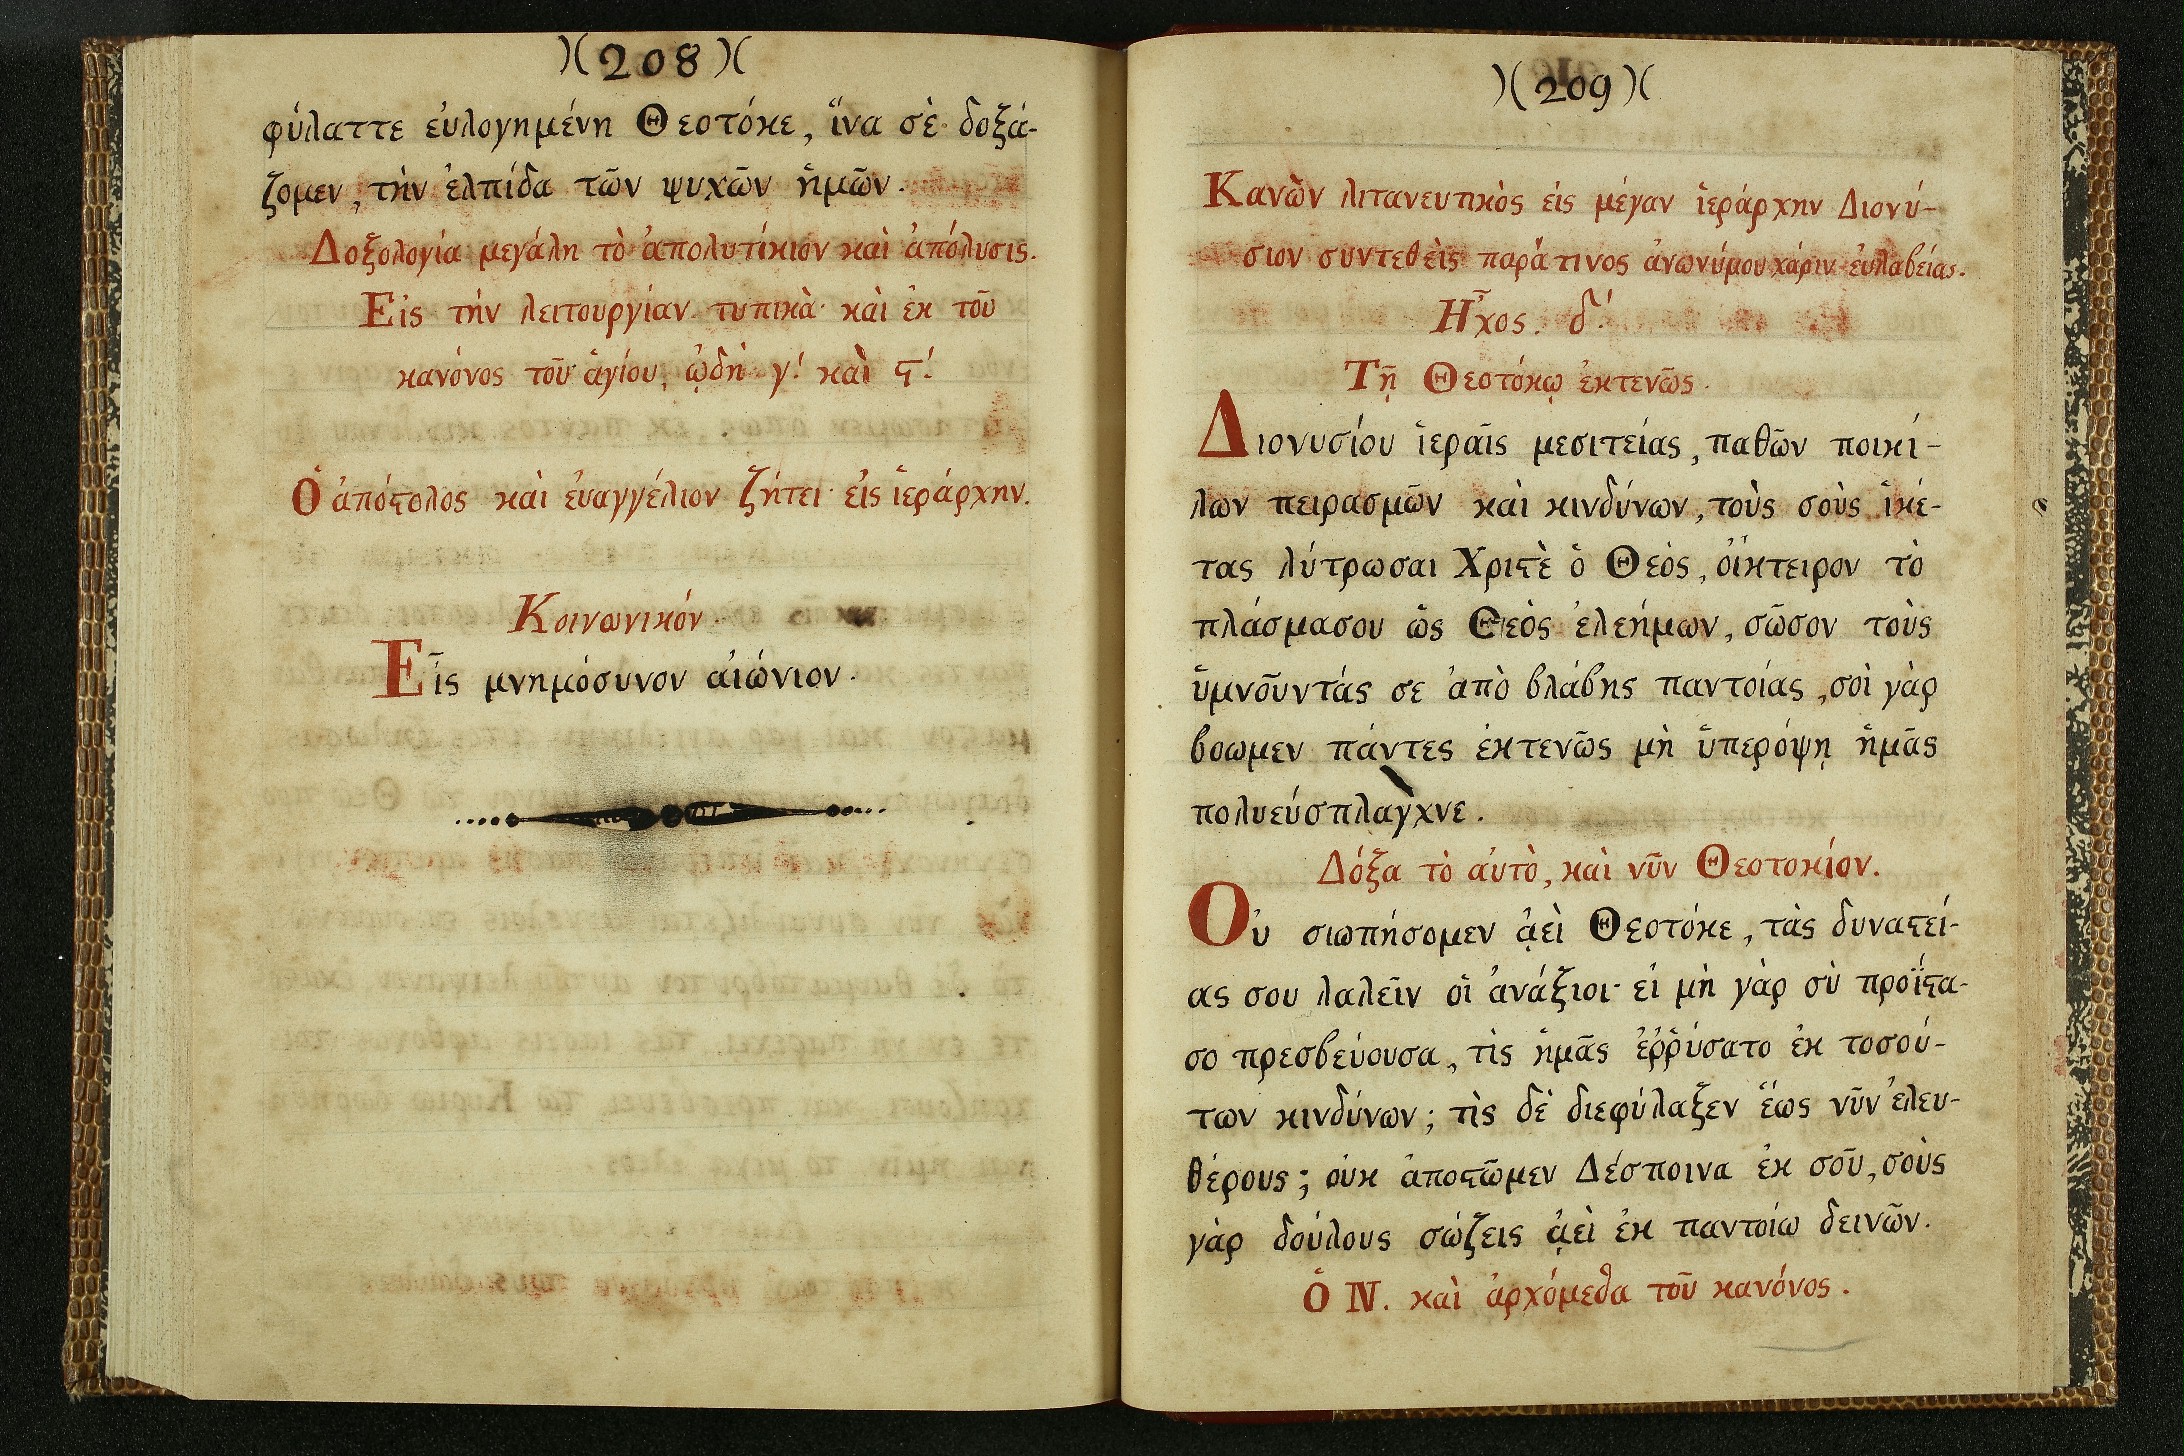 )(208)(
φύλαττε εὐλογημένη Θεοτόκε, ἵνα σὲ δοξά-
ζομεν, τὴν ἐλπίδα τῶν ψυχῶν ἡμῶν.
Δοξολογία μεγάλη τὸ ἀπολυτίκιον καὶ ἀπόλυσις.
Εἰς τὴν λειτουργίαν τυπικὰ· καὶ ἐκ τοῦ
κανόνος τοῦ ἁγίου, ᾠδὴ γ΄. καὶ ϛ΄.
Ὁ ἀπόϛολος καὶ ἐυαγγέλιον ζήτει εἰς ἱεράρχην.
Κοινωνικόν
Εἶις μνημόσυνον αἰώνιον.
)(209)(
Κανὼν λιτανευτικὸς εἰς μέγαν ἱεράρχην Διονύ-
σιον συντεθεὶς παρά τινος ἀνωνύμου χάριν ἐυλαβείας.
Ἦχος. δ΄.
Τῇ Θεοτόκῳ ἐκτενῶς.
Διονυσίου ἱεραῖς μεσιτείας, παθῶν ποικί-
λων πειρασμῶν καὶ κινδύνων, τοὺς σοὺς ἱκέ-
τας λύτρωσαι Χριϛὲ ὁ Θεὸς, οἴκτειρον τὸ
πλάσμασου ὡς Θεὸς ἐλεήμων, σῶσον τοὺς
ὑμνοῦντάς σε ἀπὸ βλάβης παντοίας, σοὶ γὰρ
βοωμεν πάντες ἐκτενῶς μὴ ὑπερόψῃ ἡμᾶς
πολυεύσπλαγχνε.
Δόξα τὸ αὐτὸ, καὶ νῦν Θεοτοκίον.
Οὐ σιωπήσομεν ᾀεὶ Θεοτόκε, τὰς δυναϛεί-
ας σου λαλεῖν οἱ ἀνάξιοι· εἰ μὴ γὰρ σὺ προΐϛα-
σο πρεσβεύουσα, τὶς ἡμᾶς ἐῤῥύσατο ἐκ τοσού-
των κινδύνων; τὶς δὲ διεφύλαξεν ἕως νῦν ἐλευ-
θέρους; οὐκ ἀποϛῶμεν Δέσποινα ἐκ σοῦ, σοὺς
γὰρ δούλους σώζεις ᾀεὶ ἐκ παντοίω δεινῶν.
Ὁ Ν. καὶ ἀρχόμεθα τοῦ κανόνος.